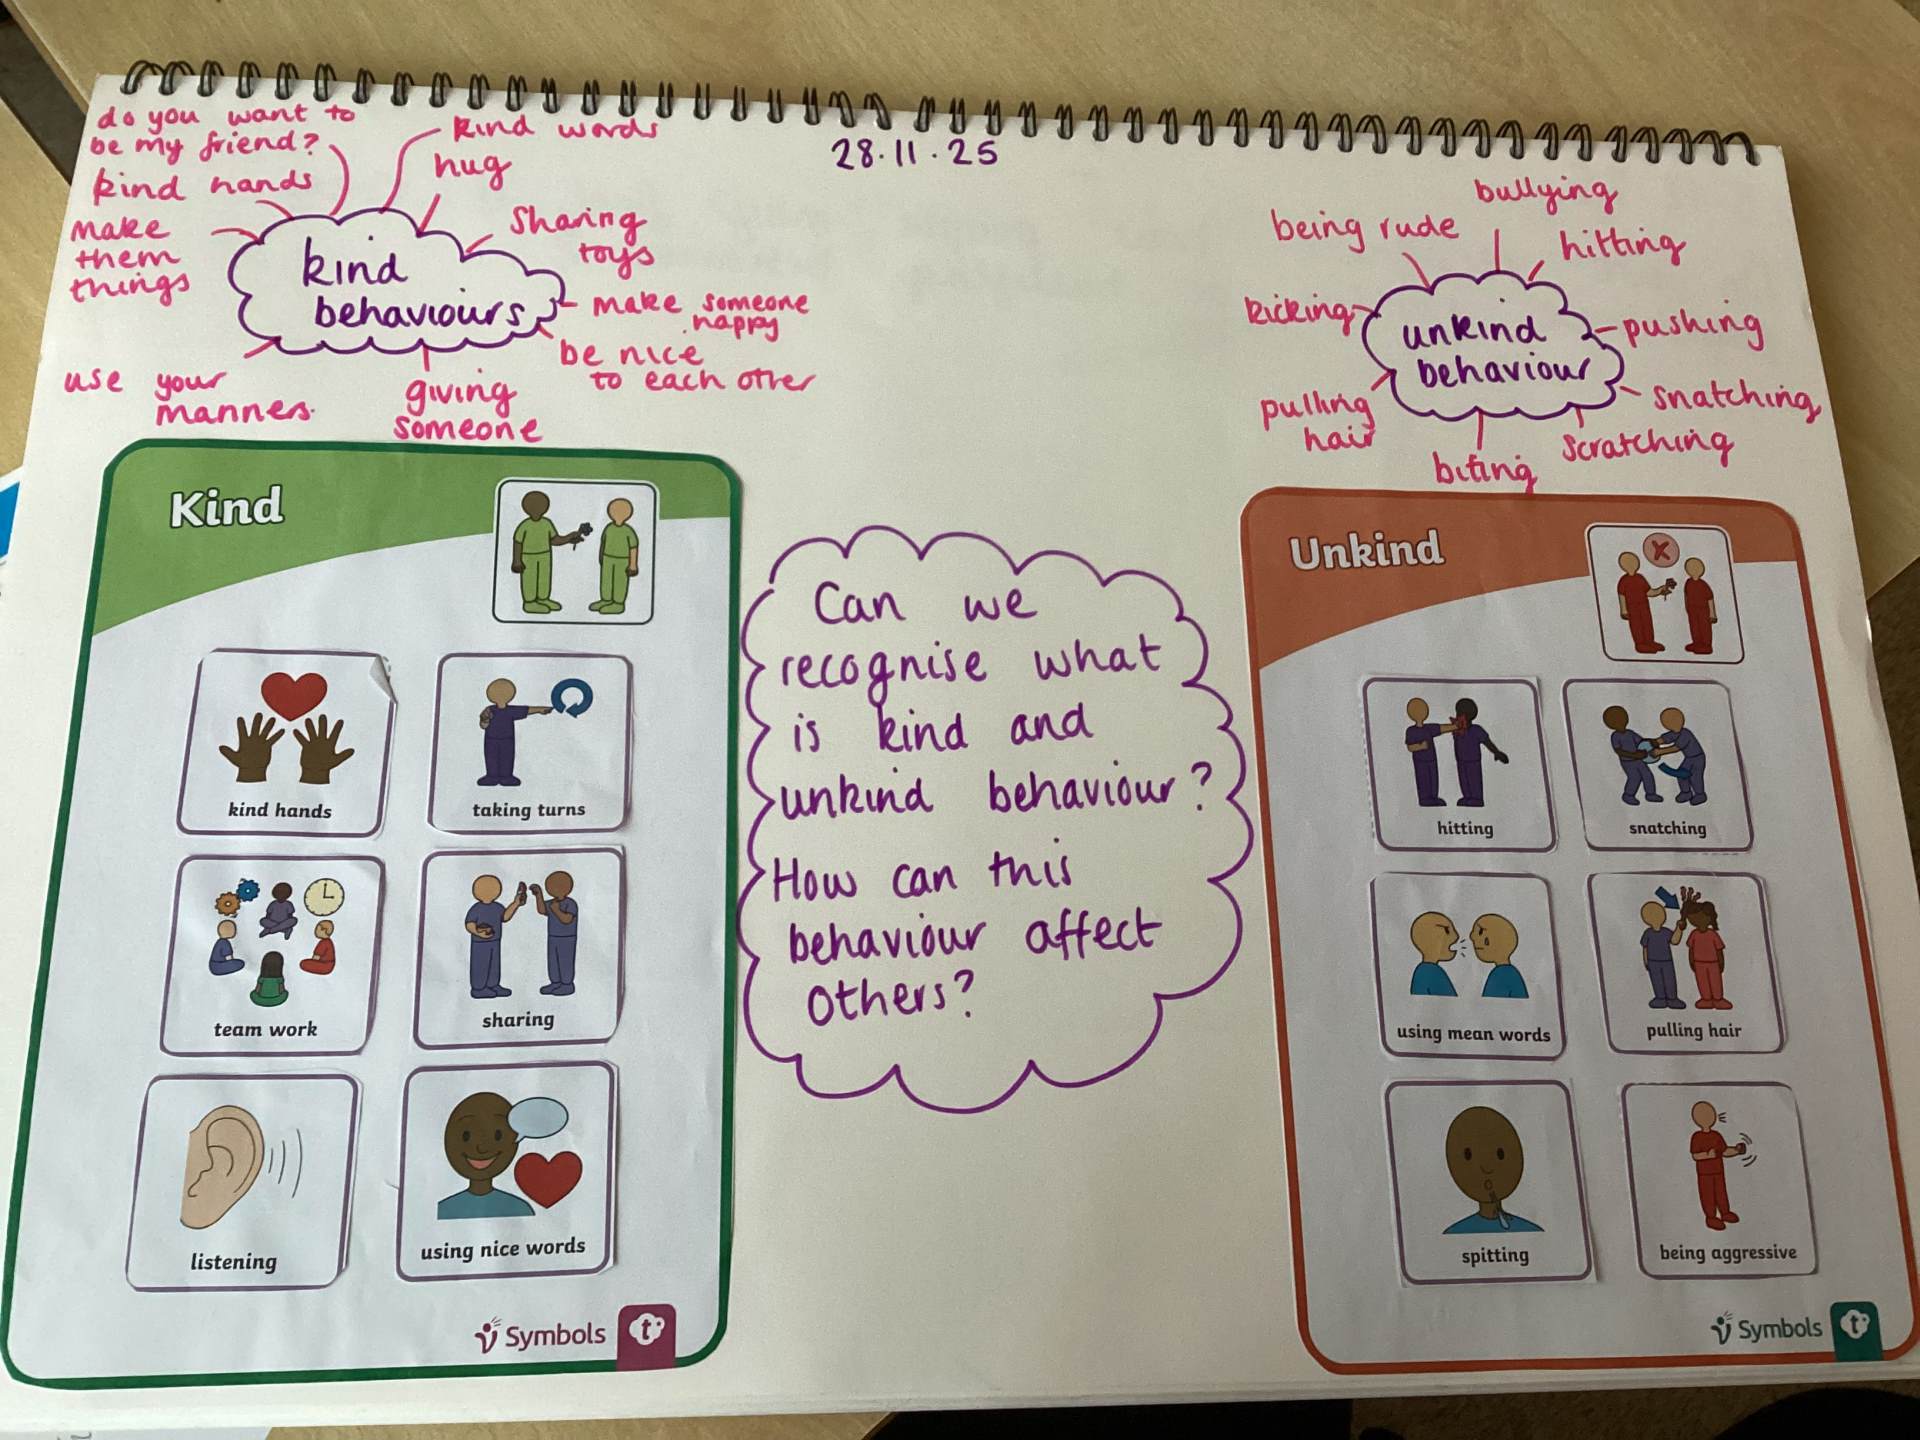 28.11.25
do you want to
be my friend?
kind words
hug
kind hands
make
them
things
sharing
toys
kind
behaviours
make someone
happy
be nice
to each other
use your
manners.
giving
someone
bullying
being rude
hitting
kicking
unkind
behaviour
pushing
pulling
hair
snatching
scratching
biting
Kind
kind hands
taking turns
team work
sharing
listening
using nice words
Symbols
t
Can we
recognise what
is kind and
unkind behaviour?
How can this
behaviour affect
others?
Unkind
hitting
snatching
using mean words
pulling hair
spitting
being aggressive
Symbols
t